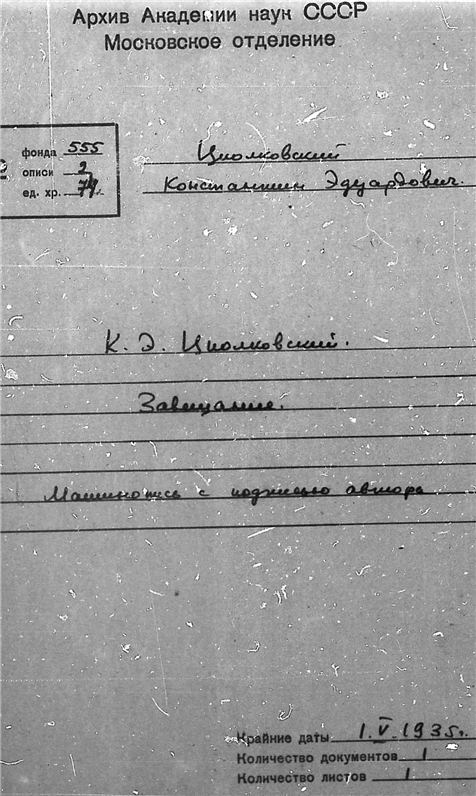 Архив Академии наук СССР
Московское отделение
фонда 555
описи 2
ед. хр. 74
Циолковский
Константин Эдуардович.
К. Э. Циолковский.
Завещание.
Машинопись с подписью автора
Крайние даты 1.V.1935г.
Количество документов 1
Количество листов 1